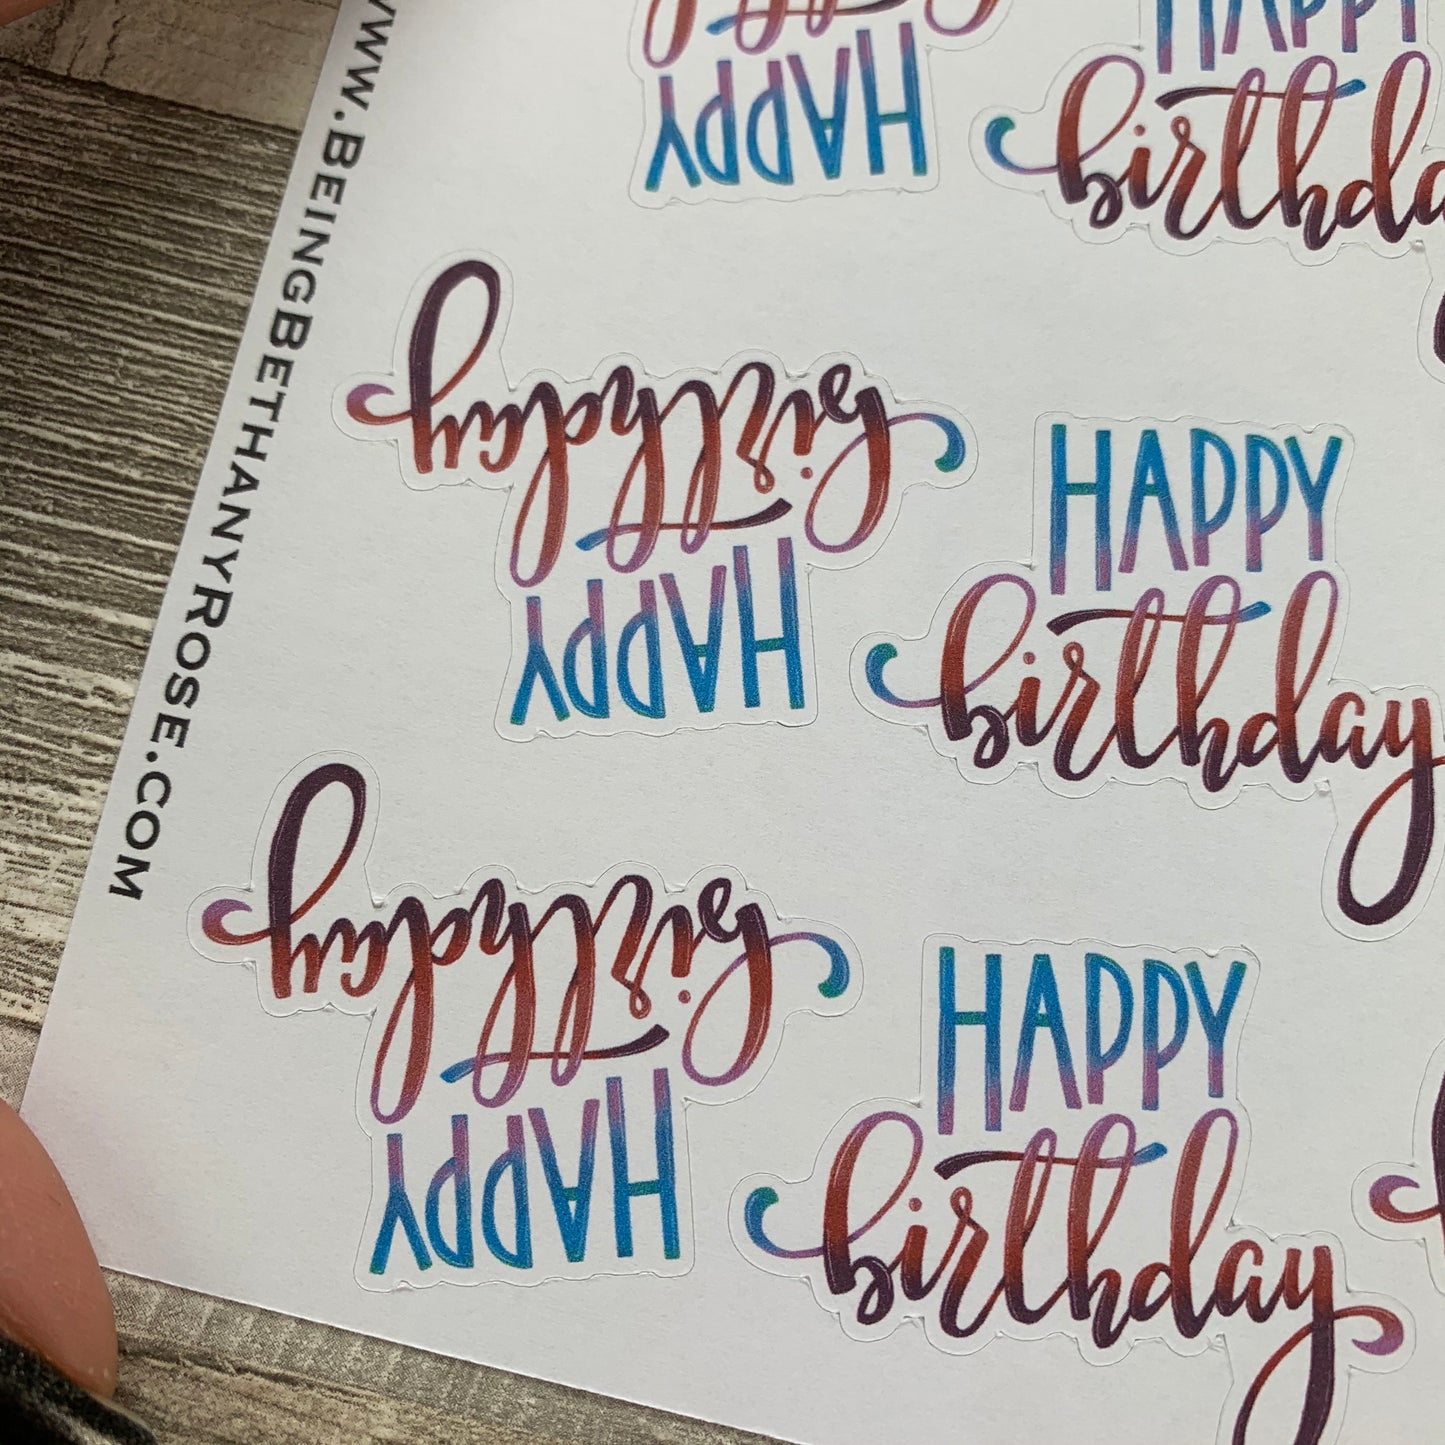 WWW.BEINGBETHANYROSE.COM
HAPPY
HAPPY
birthday
birthday
HAPPY
HAPPY
birthday
birthday
HAPPY
HAPPY
birthday